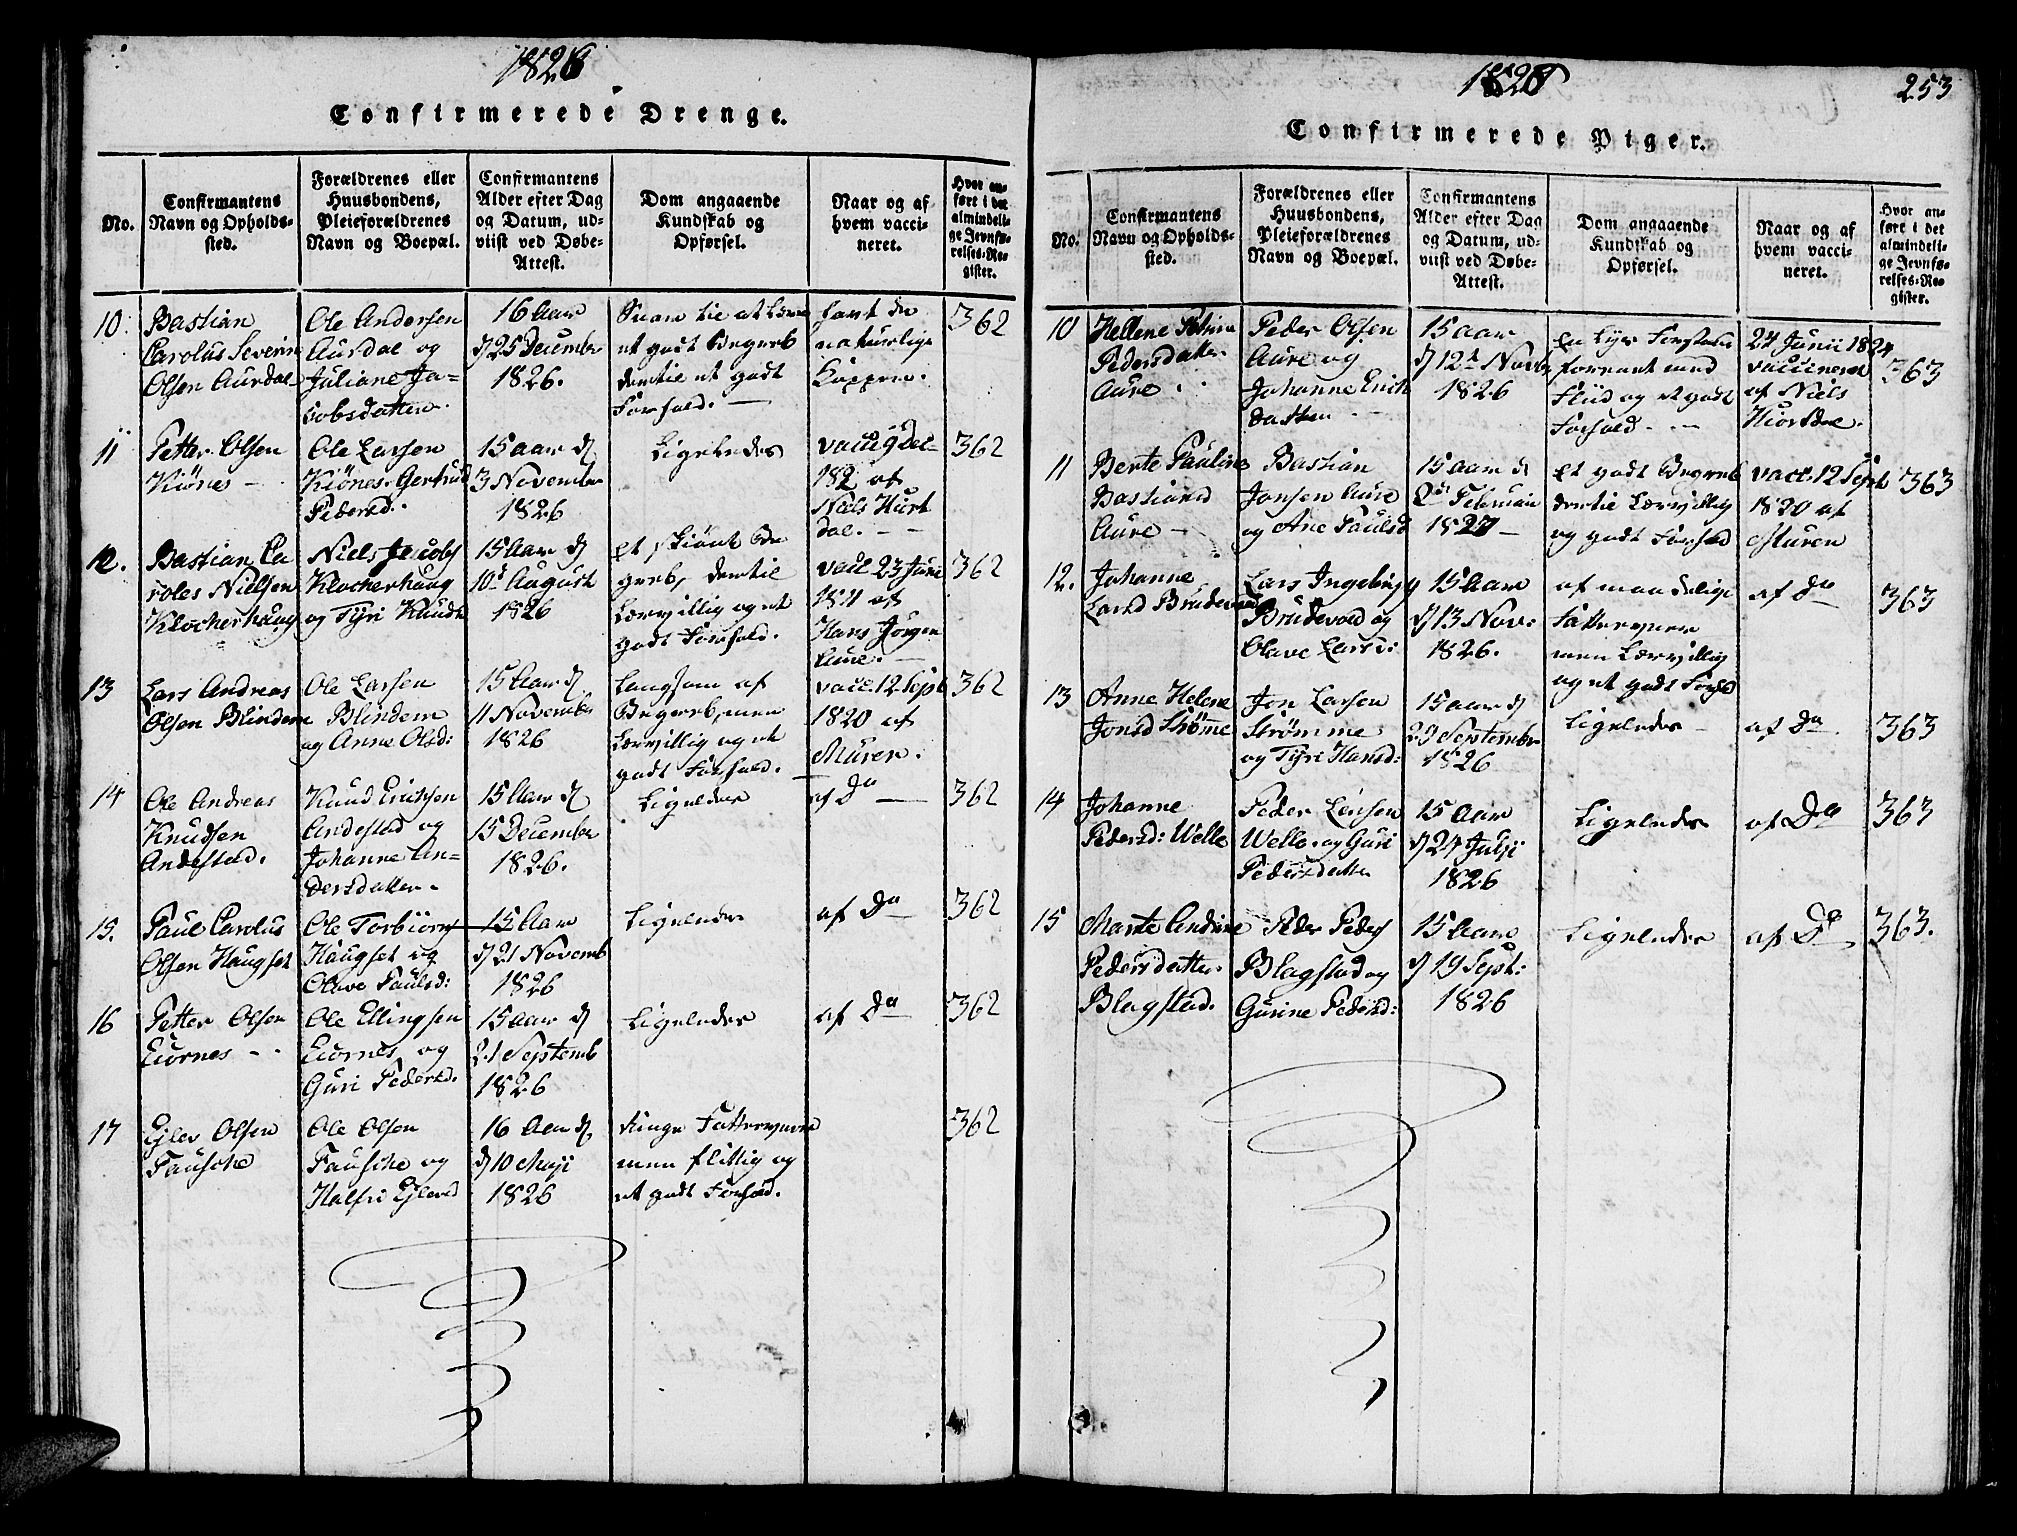 1826
Confirmerede Drenge.
No.
Confirmantens
Navn og Opholds-
sted.
Forældrenes eller
Huusbondens,
Pleieforældrenes
Navn og Boepæl.
Confirmantens
Alder efter Dag
og Datum, ud-
viist ved Døbe-
Attest.
Dom angaaende
Kundskab og
Opførsel.
Naar og af
hvem vacci-
neret.
Hvor an-
ført i det
almindeli-
ge Jevnfø-
relses-Re-
gister.
10
Bastian
Carolus Severin
Olsen Aurdal
Ole Andersen
Aurdal og
Juliane Ja-
cobsdatter
16 Aar
25 December
1826.
et godt Begreb
dertil et godt
Forhold.
havt de
naturlige
Kopper.
362
11
Petter Olsen
Kiønes
Ole Larsen
Kiønes Gertrud
Pedersd.
15 aar d
3 November
1826
Ligeledes
vacc 9 Dec
182 af
Niels Hurt
dal.
362
12.
Bastian Ca
roles Nielsen
Klocherhaug
Niels Jacobs
Klocherhaug
og Tyri Knuds
15 Aar d
10 August
1826
et skiønt Be
greb, dertil
Lærvillig og et
godt Forhold.
vacc 23 Juni
1811 af
Hans Jørgen
Aure.
362
13
Lars Andreas
Olsen Blindem
Ole Larsen
Blindem
og Anne Olsd:
15 Aar d
11 November
1826
Langsom af
Begreb, men
Lærvillig og et
godt Forhold.
vacc. 12 Sept
1820 af
Muren.
362
14
Ole Andreas
Knudsen
Andestad.
Knud Erichsen
Andestad og
Johanne An-
dersdatter
15 Aar d
15 December
1826.
Ligeledes
af Do
362
15.
Paul Carolus
Olsen Haugset
Ole Torbiørns
Haugset og
Olave Paulsd:
15 Aar
d 21 Novemb
1826
Ligeledes
af Do
362
16
Petter Olsen
Eiørnes
Ole Ellingsen
Eiørnes og
Guri Pedersd.
15 aar d
21 Septemb
1826
Ligeledes
af Do
362
17
Ejler Olsen
Fausche
Ole Olsen
Fausche og
Halfrid Ejlersd
16 Aar d
d 10 Maji
1826
Ringe Fatteevne
men flittig og
et godt Forhold.
362
253
Confirmerede Piger.
No.
Confirmantens
Navn og Opholds-
sted.
Forældrenes eller
Huusbondens,
Pleieforældrenes
Navn og Boepæl.
Confirmantens
Alder efter Dag
og Datum, ud-
viist ved Døbe-
Attest.
Dom angaaende
Kundskab og
Opførsel.
Naar og af
hvem vacci-
neret.
Hvor an-
ført i det
almindeli-
ge Jevnfø-
relses-Re-
gister.
10
Hellene Petrine
Pedersdatter
Aure
Peder Olsen
Aure og
Johanne Erich
datter
15 aar
d 12 Novbr
1826
forenet med
Fliid og et godt
Forhold
24 Junii 1824
vaccineret
af Niels
Hiortdal.
363
11
Berte Pauline
Bastiansd
Aure
Bastian
Jonsen Aure
og Ane Paulsd
15 aar d
Februari
1827
et godt Begreb
dertil Lærvillig
og godt Forhold
vacc. 12 Sept
1820 af
Muren
363
12.
Johanne
Larsd Brudevold
Lars Ingebrigt
Brudevold og
Olave Larsd:
15 Aar
d 13 Nov:
1826.
af maadelige
Fatteevner
men Lærvillig
og et godt Forhold
af Do
363
13
Anne Helene
Jonsd Strømme
Jon Larsen
Strømme
og Tyri Hansd:
15 aar d
29 September
1826
Ligeledes
af Do
363
14
Johanne
Pedersd: Welle
Peder Larsen
Welle og Guri
Pedersdatter
15 Aar
d 24 Julji
1826
Ligeledes
af Do
363
15
Marte Andrine
Pedersdatter
Blagstad.
Peder Peders
Blagstad og
Gurine Pedersd:
15 Aar
d 19 Sept:
1826
Ligeledes
af Do
363.